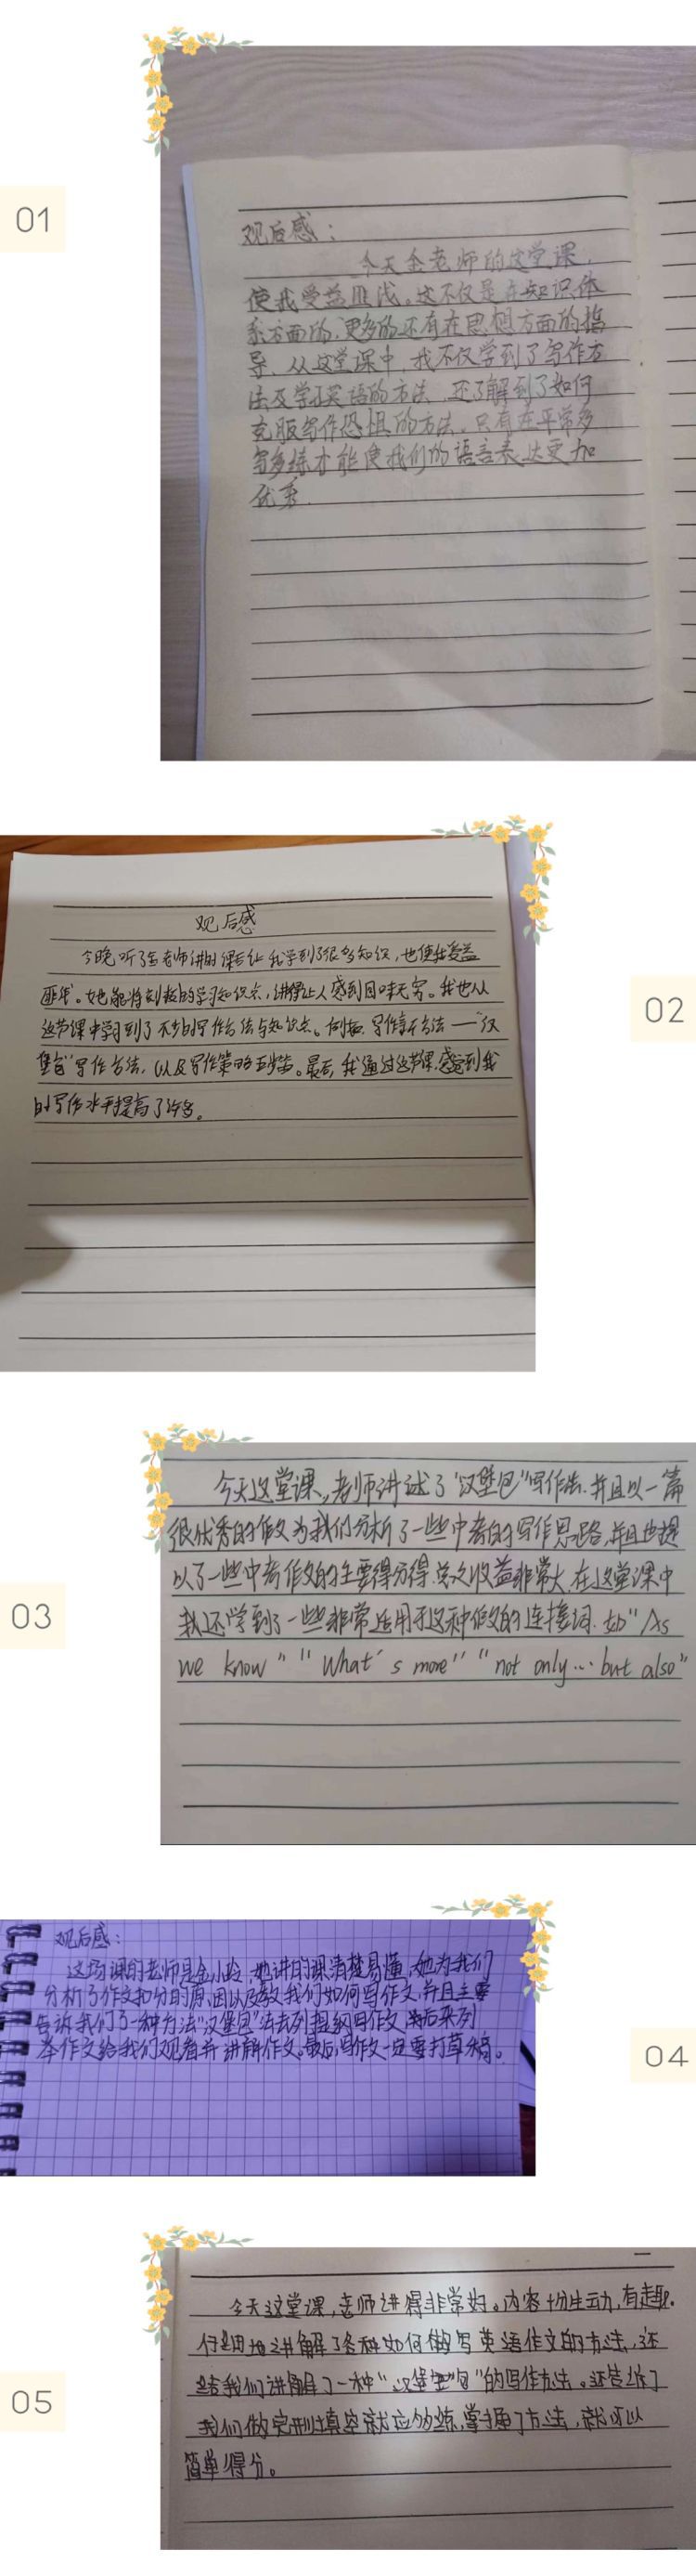 01
观后感：
今天金老师的这堂课，
使我受益匪浅。这不仅是在知识体
系方面的，更多的还有在思想方面的指
导，从这堂课中，我不仅学到了写作方
法及学习英语的方法，还了解到了如何
克服写作恐惧的方法。只有在平常多
写多练才能使我们的语言表达更加
优秀.
02
观后感
今晚听了金老师讲的课后让我学到了很多知识，也使我受益
匪浅。她能将刻板的学习知识点，讲得让人感到回味无穷。我也从
这节课中学习到了不少的写作方法与知识点。例如，写作方法——“汉
堡包”写作方法，以及写作策略五步。最后，我通过这节课，感觉到我
的写作水平提高了许多。
03
今天这堂课，老师讲述了“汉堡包”写作法.并且以一篇
很优秀的作文为我们分析了一些中考的写作思路，并且也提
以了一些中考作文的主要得分得.总之收益非常大，在这堂课中
我还学到了一些非常适用于这种作文的连接词.如“As
we know” “What's more” “not only… but also”
04
观后感：
这场课的老师是金小玲，她讲的课清楚易懂，她为我们
分析了作文扣分的原因以及教我们如何写作文，并且主要
告诉我们了一种方法“汉堡包”法去列提纲写作文，最后来列
举作文给我们观看并讲解作文，最后，写作文一定要打草稿。
05
今天这堂课，老师讲得非常好。内容十分生动，有趣。
仔细地讲解了各种如何做写英语作文的方法，还
给我们讲解了一种“汉堡包”的写作方法。还告诉了
我们做完形填空就应多练，掌握了方法，就可以
简单得分。